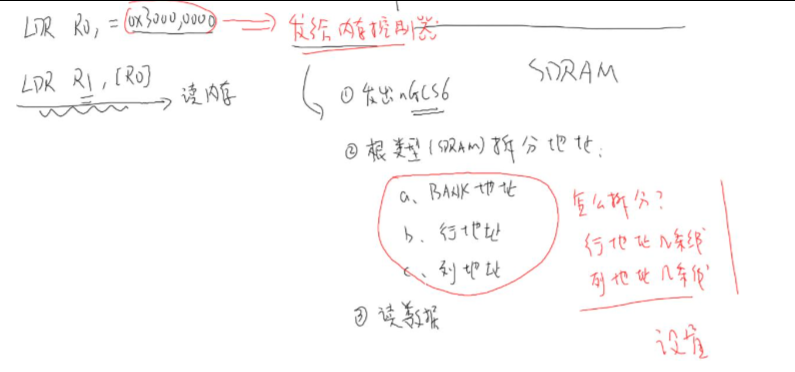 LDR R0, =0x3000,0000 => 发给内存控制器:
SDRAM
LDR R1, [R0] → 读内存
① 发出nGCS6
② 根类型(SDRAM)拆分地址:
a、BANK地址
b、行地址
c、列地址
怎么拆分?
行地址几条线
列地址几条线
③ 读数据
设置